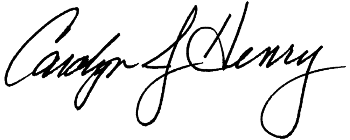 Carolyn J Henry